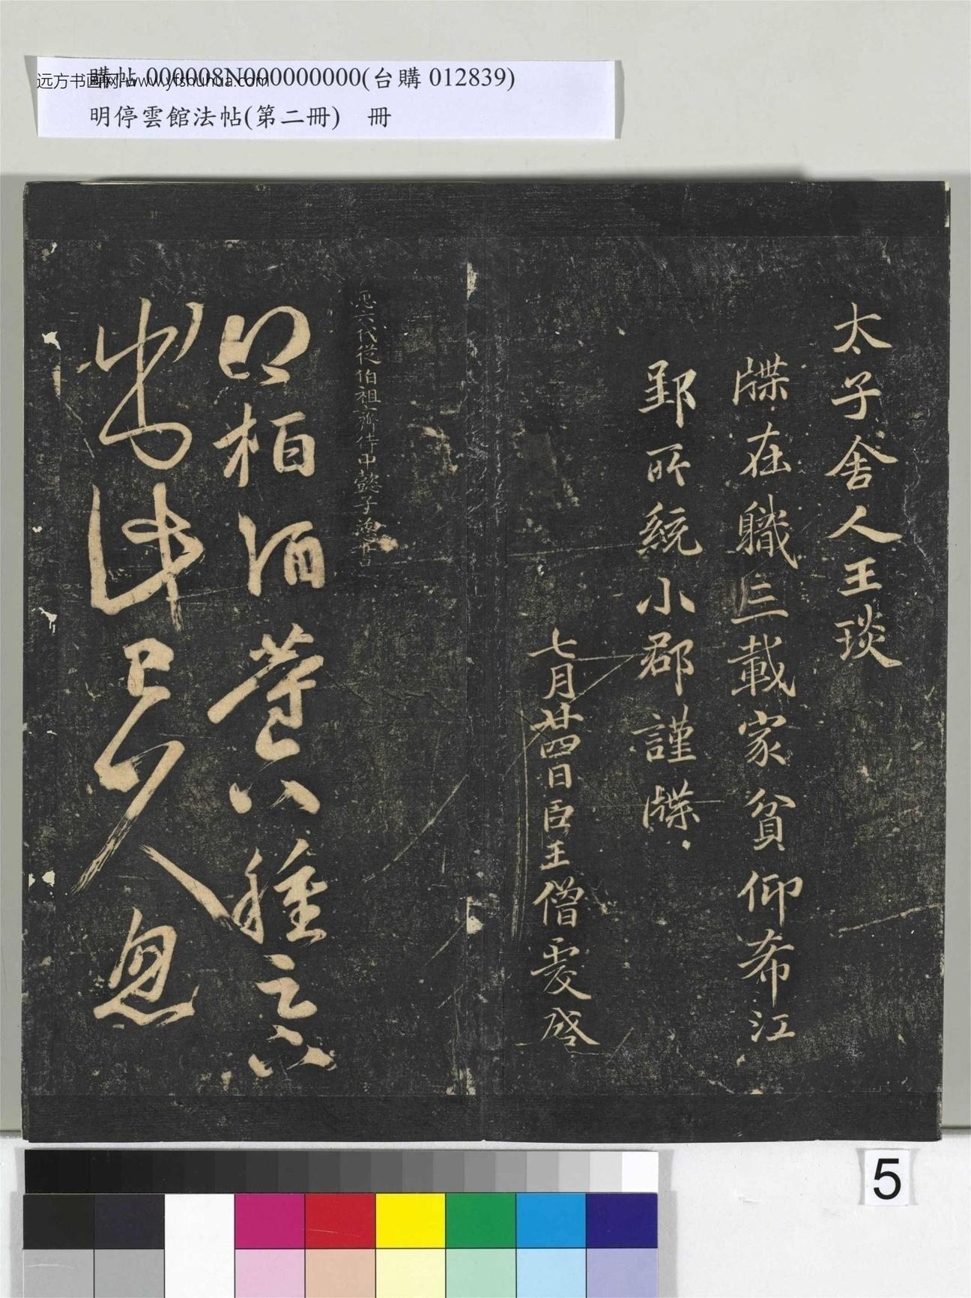 購帖 000008N000000000(台購 012839)
远方书画网 www.yfshuhua.com
明停雲館法帖(第二冊)　冊
太子舍人王琰
牒在職三載家貧仰希江
郢所統小郡謹牒
七月廿四日臣王僧虔啓
臣六代從伯祖齊侍中懿子慈書
得柏酒等六種足下
出此已久忽
5